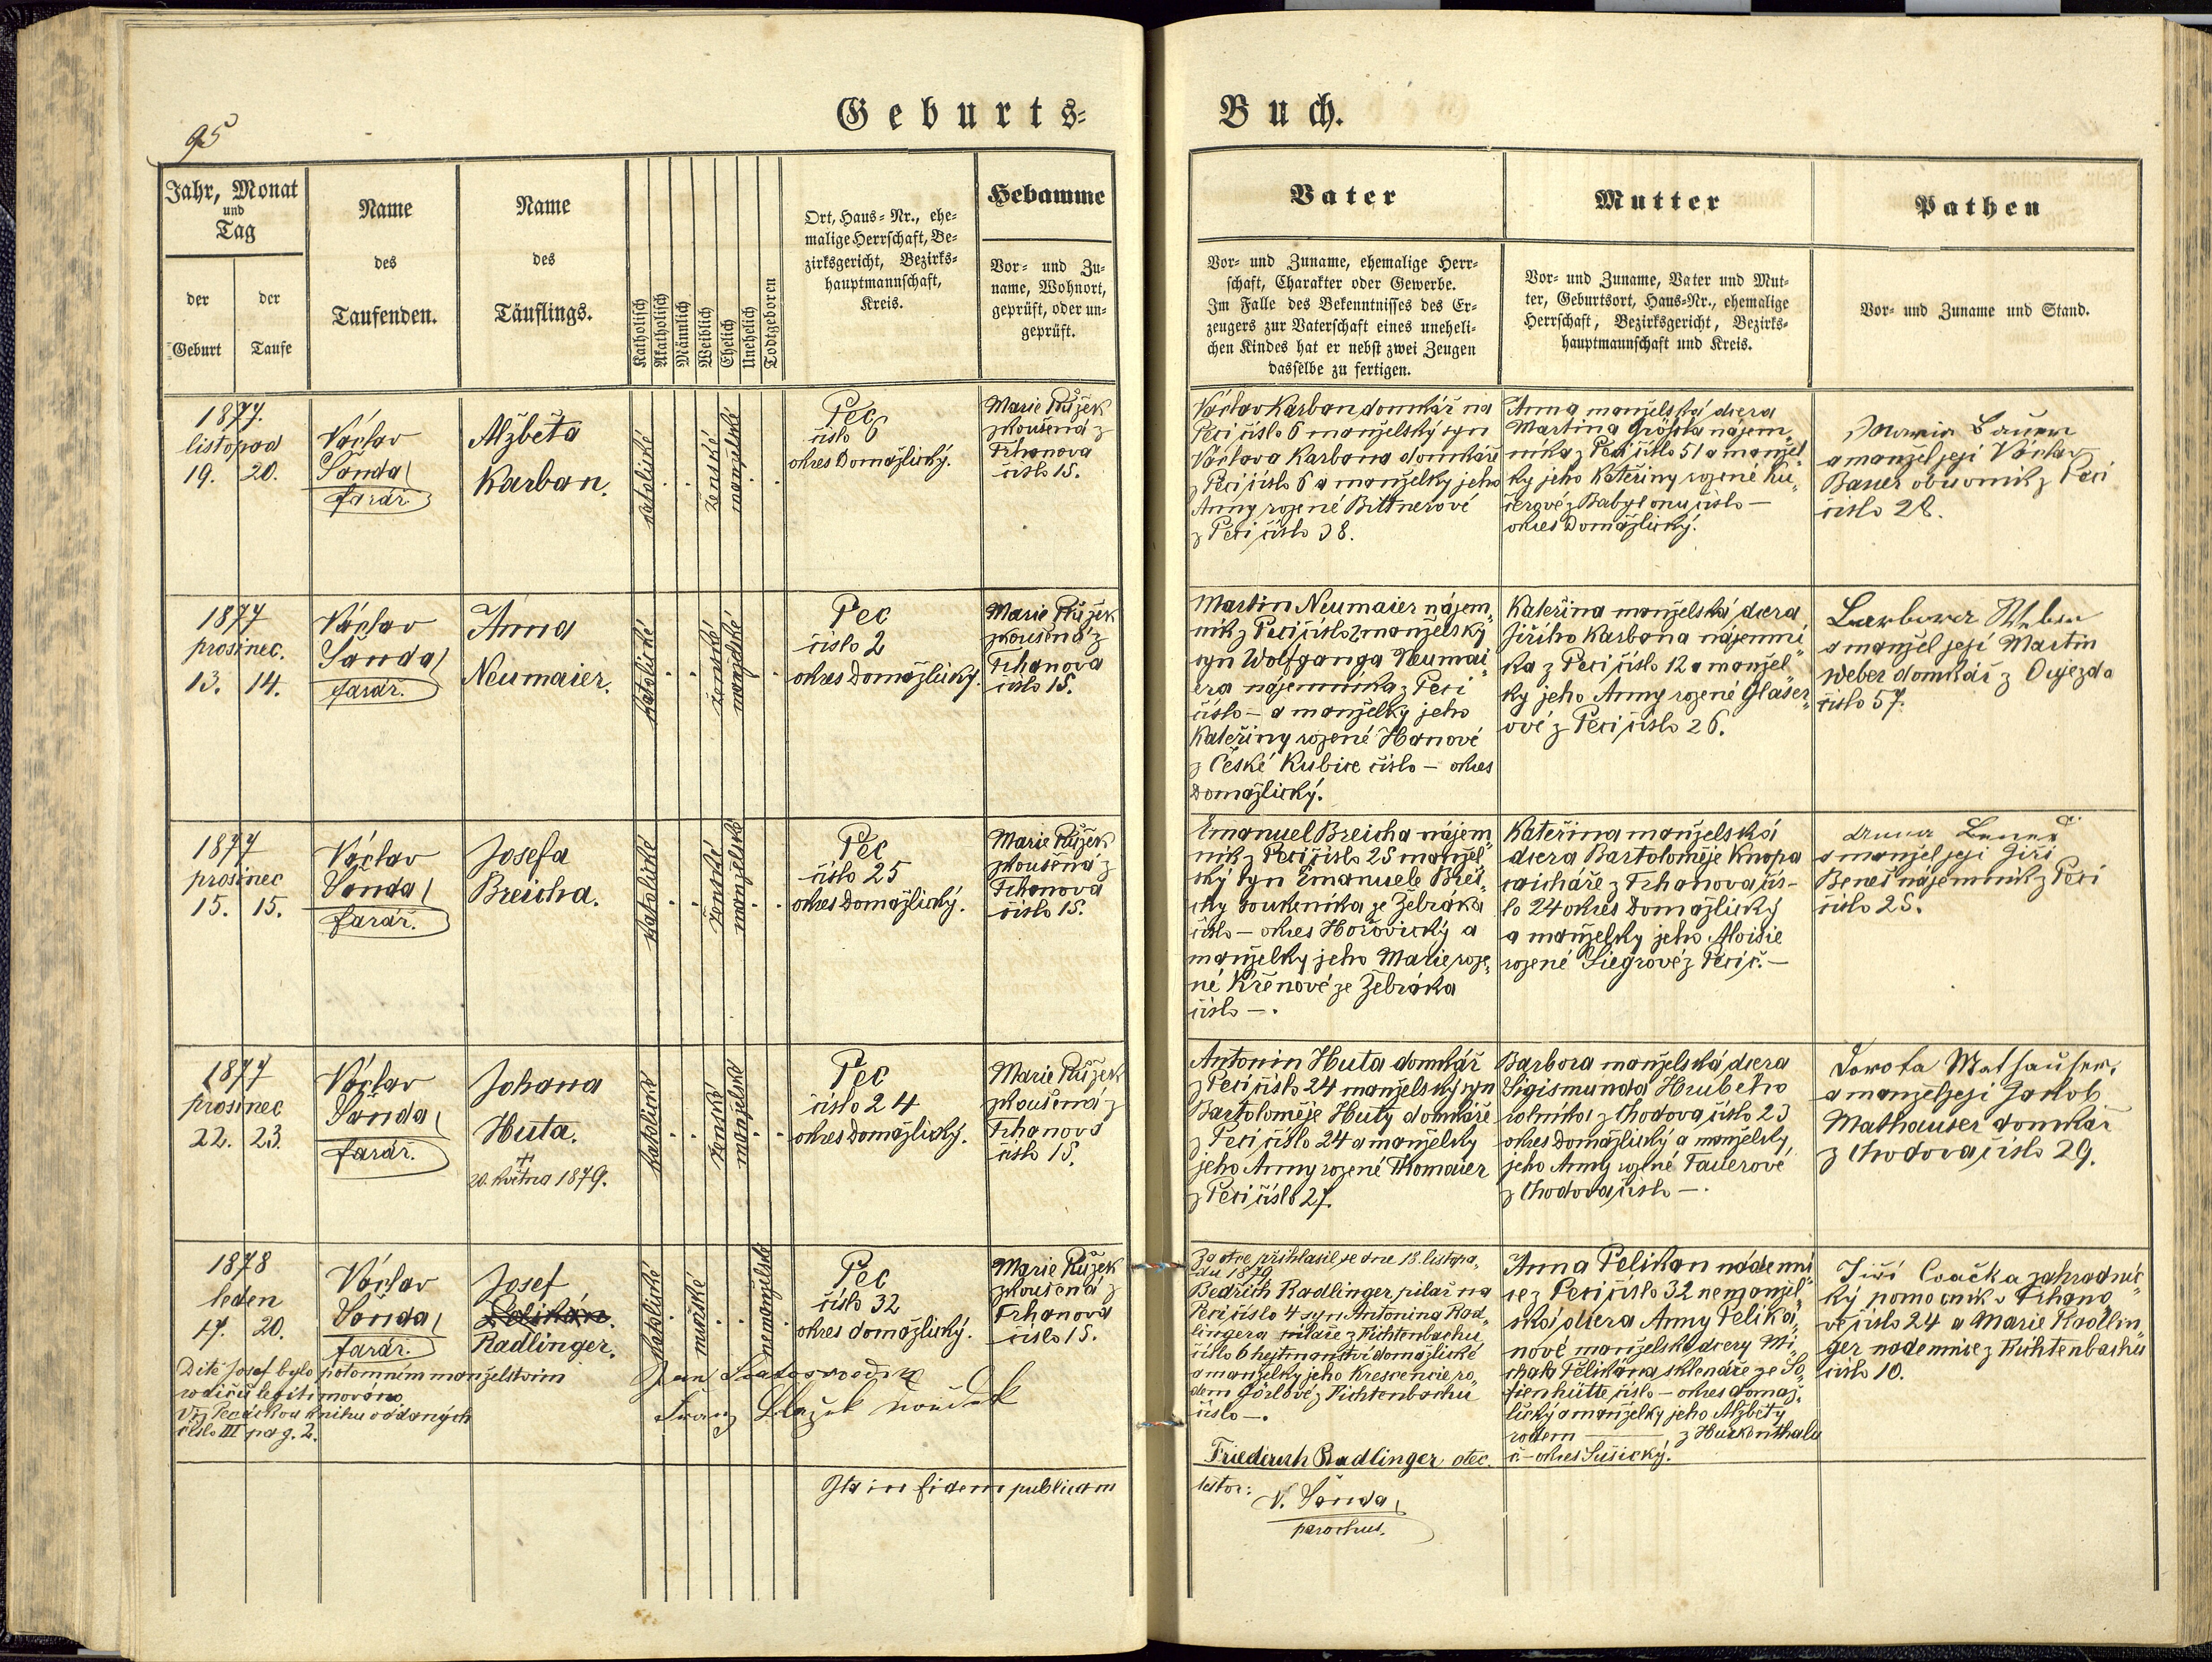 95
Geburts=
Buch.
Jahr, Monat
und
Tag
der
Geburt
der
Taufe
Name
des
Taufenden.
Name
des
Täuflings.
Katholisch
Akatholisch
Männlich
Weiblich
Ehelich
Unehelich
Todtgeboren
Ort, Haus=Nr., ehe=
malige Herrschaft, Be=
zirksgericht, Bezirks=
hauptmannschaft,
Kreis.
Hebamme
Vor= und Zu=
name, Wohnort,
geprüft, oder un=
geprüft.
Vater
Vor= und Zuname, ehemalige Herr=
schaft, Charakter oder Gewerbe.
Im Falle des Bekenntnisses des Er=
zeugers zur Vaterschaft eines uneheli=
chen Kindes hat er nebst zwei Zeugen
dasselbe zu fertigen.
Mutter
Vor= und Zuname, Vater und Mut=
ter, Geburtsort, Haus=Nr., ehemalige
Herrschaft, Bezirksgericht, Bezirks=
hauptmannschaft und Kreis.
Pathen
Vor= und Zuname und Stand.
1877.
listopad
19. 20.
Václav
Šanda
farář
Alžběta
Karban.
katolické
ženské
manželské
Pec
číslo 6
okres Domažlický.
Marie Růžek
zkoušená z
Trhanova
číslo 15.
Václav Karban domkář na
Peci číslo 6 manželský syn
Václava Karbana domkáře
z Peci číslo 6 a manželky jeho
Anny rozené Bittnerové
z Peci číslo 38.
Anna manželská dcera
Martina nájem„
níka z Peci číslo 51 a manžel„
ky jeho Kateřiny rozené Ku„
čerové z Babylonu číslo —
okres Domažlický.
Maria Bauer
a manžel její Václav
Bauer obuvník z Peci
číslo 28.
1877
prosinec.
13. 14.
Václav
Šanda
farář.
Anna
Neumaier.
katolické
ženské
manželské
Pec
číslo 2
okres Domažlický.
Marie Růžek
zkoušená z
Trhanova
číslo 15.
Martin Neumaier nájem„
ník z Peci číslo 2 manželský
syn Wolfganga Neumai„
era nájemníka z Peci
číslo — a manželky jeho
Kateřiny rozené Hanové
z České Kubice číslo — okres
Domažlický.
Kateřina manželská dcera
Jiřího Karbana nájemní„
ka z Peci číslo 12 a manžel„
ky jeho Anny rozené Glaser„
ové z Peci číslo 26.
Barbora Weber
a manžel její Martin
Weber domkář z Oujezda
číslo 57.
1877
prosinec
15. 15.
Václav
Šanda
farář.
Josefa
Breicha.
katolické
ženské
manželské
Pec
číslo 25
okres Domažlický.
Marie Růžek
zkoušená z
Trhanova
číslo 15.
Emanuel Breicha nájem„
ník z Peci číslo 25 manžel„
ský syn Emanuele Brei„
chy soukeníka ze Žebráka
číslo — okres Hořovický a
manželky jeho Marie roze„
né Křenové ze Žebráka
číslo —.
Kateřina manželská
dcera Bartoloměje Knopa
z Trhanova čís-
lo 24 okres Domažlický
a manželky jeho Aloisie
rozené Siegrové z Peci č. —
Anna Beneš
a manžel její Jiří
Beneš nájemník z Peci
číslo 25.
1877
prosinec
22. 23.
Václav
Šanda
farář.
Johana
Huta.
+
20. května 1879.
katolické
ženské
manželské
Pec
číslo 24
okres Domažlický.
Marie Růžek
zkoušená z
Trhanova
číslo 15.
Antonín Huta domkář
z Peci číslo 24 manželský syn
Bartoloměje Huty domkáře
z Peci číslo 24 a manželky
jeho Anny rozené Thomaier
z Peci číslo 27.
Barbora manželská dcera
Sigismunda Hrubeho
rolníka z Chodova číslo 23
okres Domažlický a manželky
jeho Anny rozené Tauerové
z Chodova číslo —.
Dorota Mathauser
a manžel její Jakob
Mathauser domkář
z Chodova číslo 29.
1878
leden
17. 20.
Václav
Šanda
farář.
Josef
Pelikán.
Radlinger.
katolické
mužské
nemanželské
Pec
číslo 32
okres domažlický.
Marie Růžek
zkoušená z
Trhanova
číslo 15.
Za otce přihlásil se dne 18. listopa„
du 1879
Bedřich Radlinger pilař na
Peci číslo 4 syn Antonína Rad„
lingera pilaře z Fichtenbachu
číslo 6 hejtmanství domažlické
a manželky jeho Krescencie ro„
dem Görlové z Fichtenbachu
číslo —.
Friederich Radlinger otec.
Anna Pelikan nádenni„
ce z Peci číslo 32 nemanžel„
ská dcera Anny Peliká„
nové manželské dcery Mi„
chala Pelikána sklenáře ze So„
fienhütte číslo — okres domaž„
lický a manželky jeho Alžběty
rodem — z Hurkenthalu
č. — okres Sušický.
Jiří Cvačka zahradnic„
ký pomocník v Trhano„
vě číslo 24 a Marie Radlin„
ger nadennice z Fichtenbachu
číslo 10.
Dítě Josef bylo potomním manželstvím
rodičů legitimováno
Viz Pecáckou knihu oddaných
číslo III pag. 2.
Jan
Franz Blažek
Ita in fidem publicam
testor:
V. Šanda
parochus.